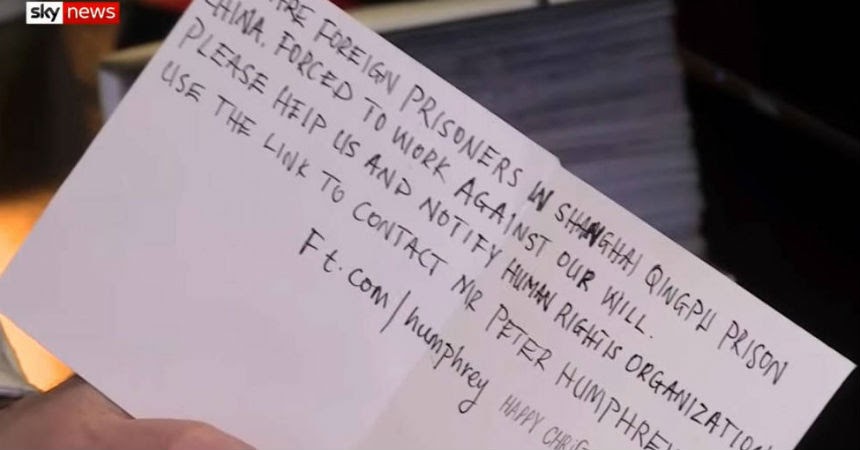 sky news
ARE FOREIGN PRISONERS IN SHANGHAI QINGPU PRISON
CHINA. FORCED TO WORK AGAINST OUR WILL.
PLEASE HELP US AND NOTIFY HUMAN RIGHTS ORGANIZATION
USE THE LINK TO CONTACT MR PETER HUMPHREY
Ft.com/humphrey
HAPPY